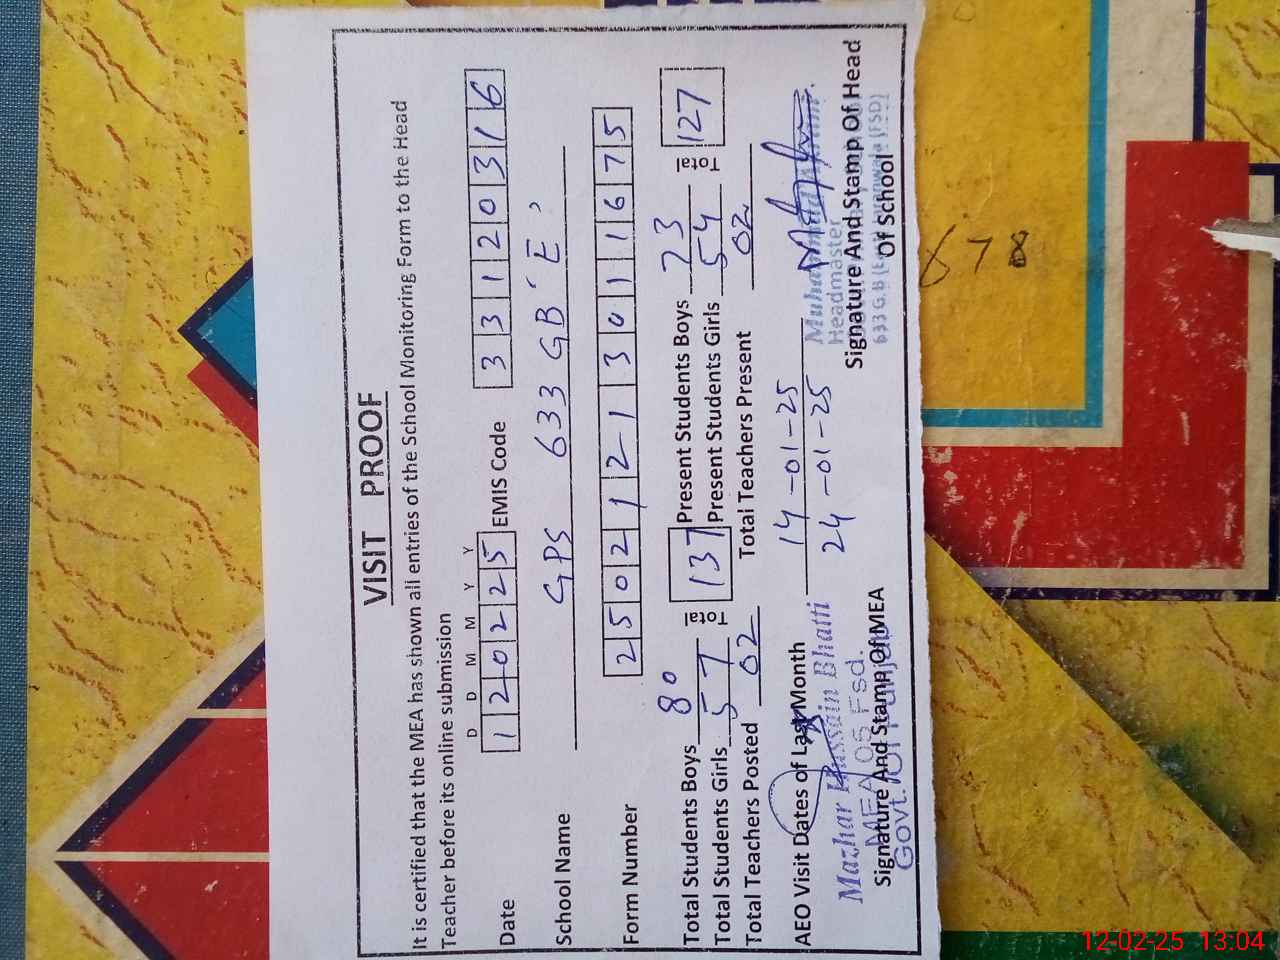 VISIT PROOF
It is certified that the MEA has shown all entries of the School Monitoring Form to the Head
Teacher before its online submission
D D M M Y Y
Date 120225 EMIS Code 33120316
School Name GPS 633 GB 'E'
Form Number 25021213011675
Total Students Boys 80 Total 137 Present Students Boys 73 Total 127
Total Students Girls 57 Present Students Girls 54
Total Teachers Posted 02 Total Teachers Present 02
AEO Visit Dates of Last Month 14-01-25
24-01-25
Mazhar Hussain Bhatti
MEA 05 Fsd.
Govt. of Punjab
Signature And Stamp Of MEA
Muhammad
Headmaster
633 G.B (FSD)
Signature And Stamp Of Head
Of School
678
12-02-25 13:04